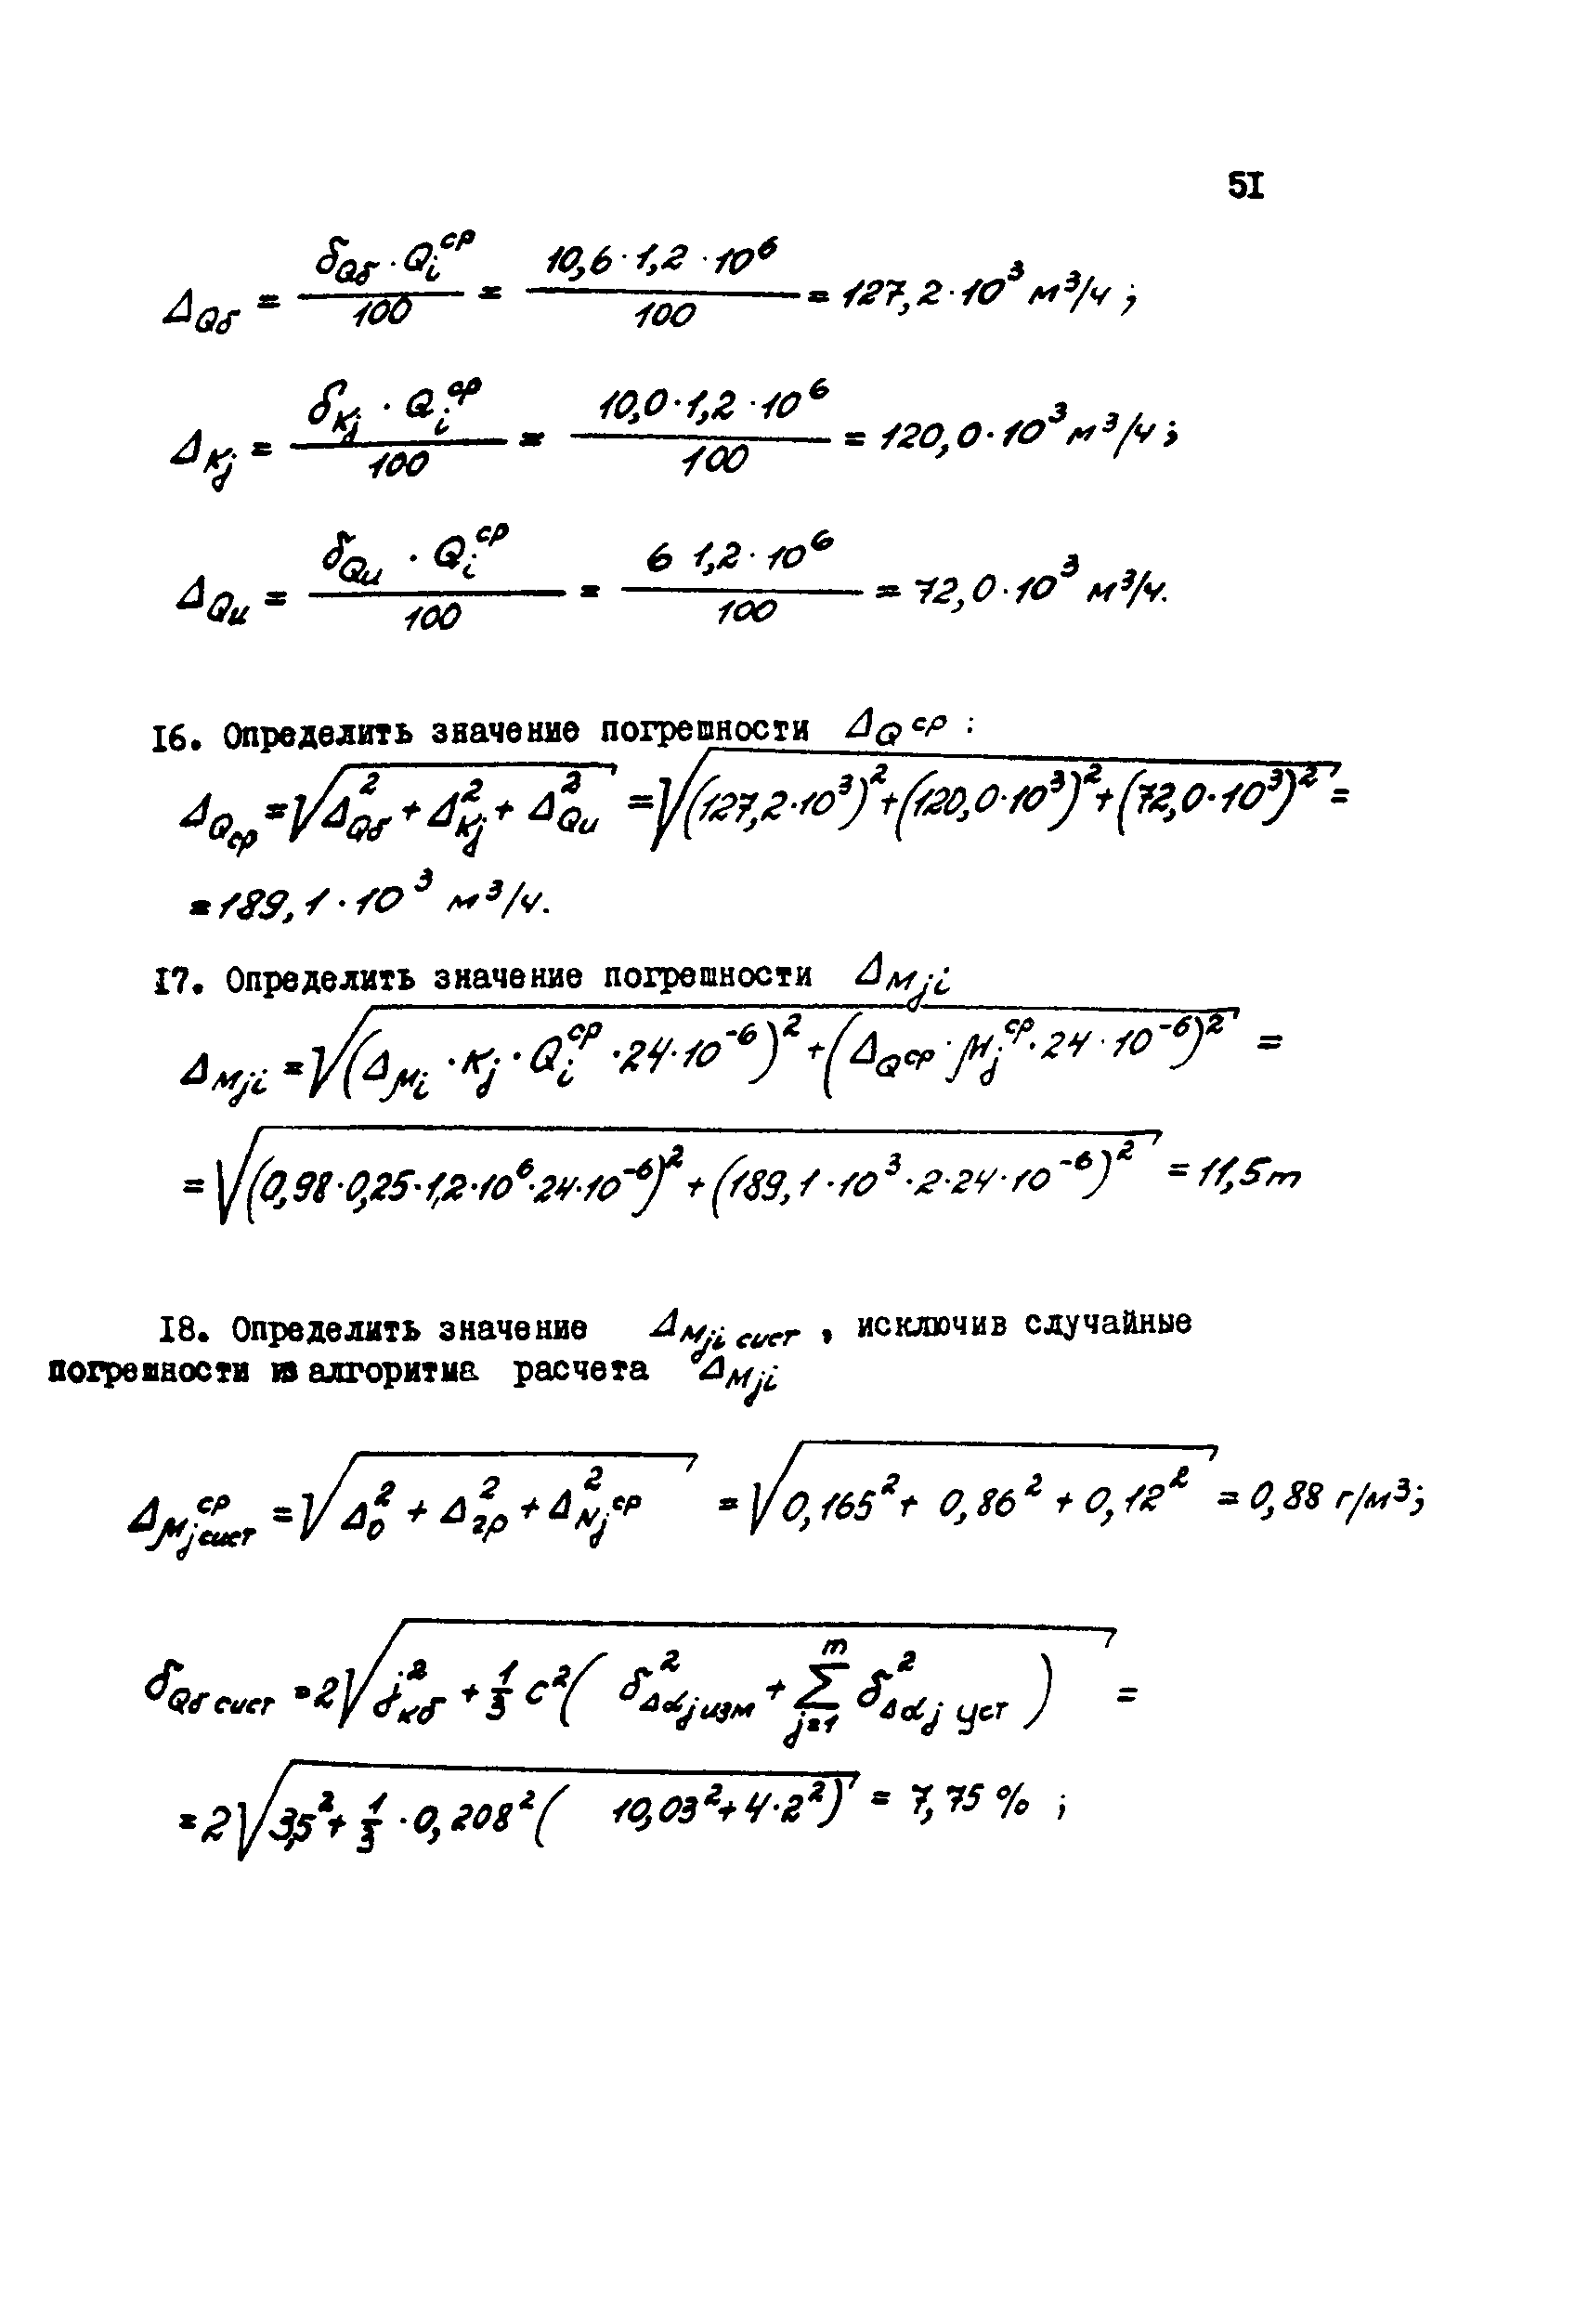 51
Δ_Qб = (δ_Qб · Q_i^ср) / 100 = (10,6 · 1,2 · 10^6) / 100 = 127,2 · 10^3 м^3/ч ;
Δ_Kj = (δ_Kj · Q_i^ср) / 100 = (10,0 · 1,2 · 10^6) / 100 = 120,0 · 10^3 м^3/ч ;
Δ_Qи = (δ_Qи · Q_i^ср) / 100 = (6 1,2 · 10^6) / 100 = 72,0 · 10^3 м^3/ч.
16. Определить значение погрешности Δ_Q^ср :
Δ_Qср = √(Δ_Qб^2 + Δ_Kj^2 + Δ_Qи^2) = √((127,2·10^3)^2 + (120,0·10^3)^2 + (72,0·10^3)^2) =
= 189,1 · 10^3 м^3/ч.
17. Определить значение погрешности Δ_Mji
Δ_Mji = √((Δ_μi · K_j · Q_i^ср · 24 · 10^-6)^2 + (Δ_Qср · μ_j^ср · 24 · 10^-6)^2) =
= √((0,98·0,25·1,2·10^6·24·10^-6)^2 + (189,1·10^3·2·24·10^-6)^2) = 11,5 т
18. Определить значение Δ_Mji сист , исключив случайные
погрешности из алгоритма расчета Δ_Mji
Δ_μj сист^ср = √(Δ_0^2 + Δ_гр^2 + Δ_Nj^ср^2) = √(0,165^2 + 0,86^2 + 0,12^2) = 0,88 г/м^3;
δ_Qб сист = 2√(j_кб^2 + 1/3 c^2 ( δ_Δαj изм^2 + ∑_{j=1}^m δ_Δαj уст^2 ) =
= 2√(3,5^2 + 1/3 · 0,208^2 ( 10,03^2 + 4·2^2) = 7,75 % ;